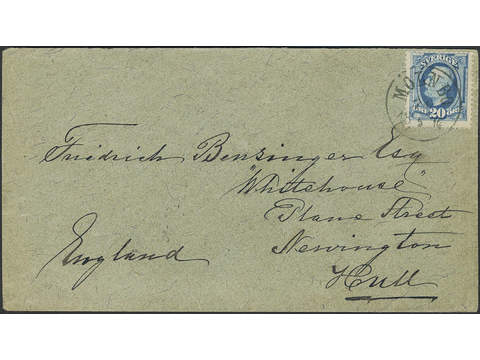 SVERIGE
20
Fridrich Bensinger Esq
"Whitehouse"
Plane Street
Newington
England
Hull